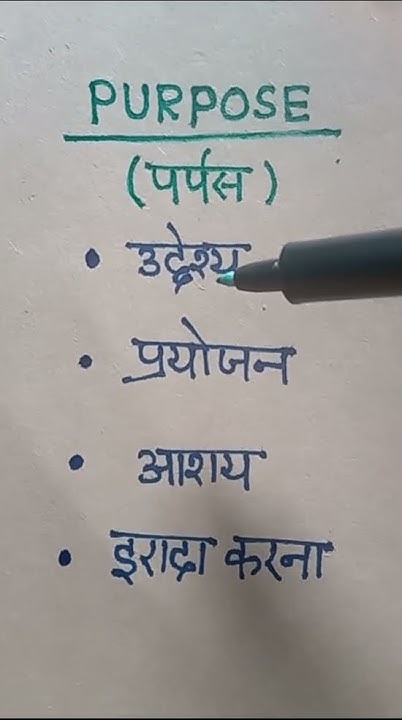 PURPOSE
(पर्पस)
• उद्देश्य
• प्रयोजन
• आशय
• इरादा करना